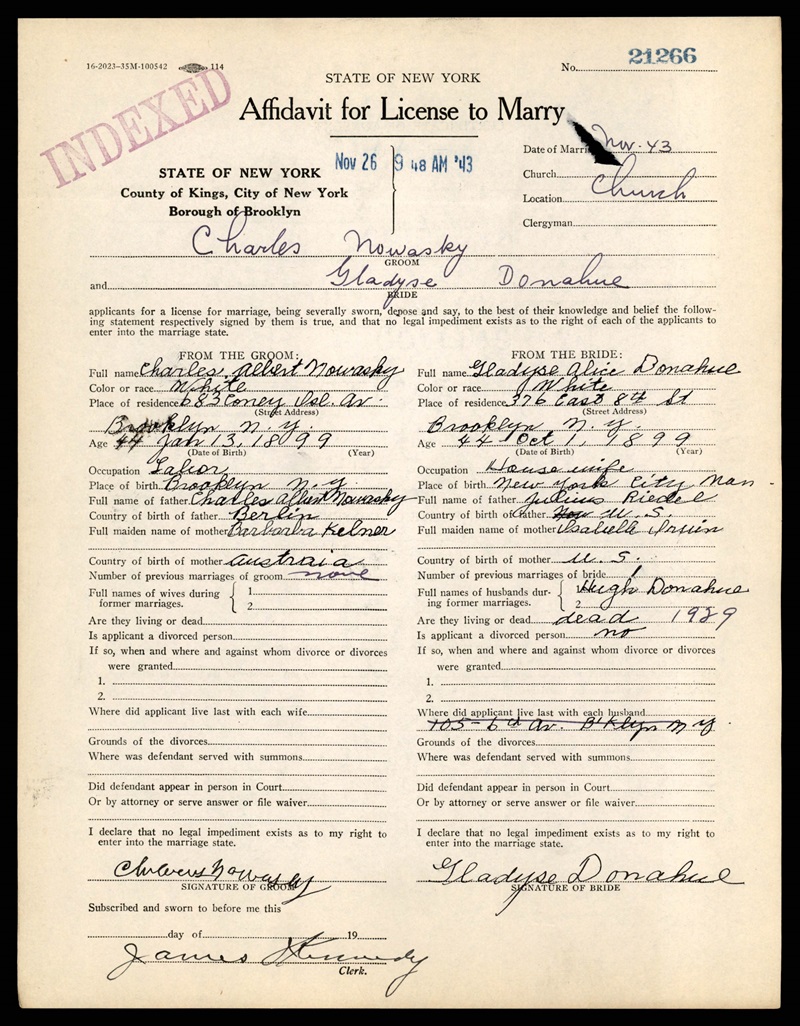 16-2023-35M-100542 114
No. 21266
INDEXED
STATE OF NEW YORK
Affidavit for License to Marry
Nov 26 9 48 AM '43
STATE OF NEW YORK
County of Kings, City of New York
Borough of Brooklyn
Date of Marri Nov. 43
Church
Location Church
Clergyman
Charles Nowasky
GROOM
and Gladyse Donahue
BRIDE
applicants for a license for marriage, being severally sworn, depose and say, to the best of their knowledge and belief the follow-
ing statement respectively signed by them is true, and that no legal impediment exists as to the right of each of the applicants to
enter into the marriage state.
FROM THE GROOM:
Full name Charles Albert Nowasky
Color or race White
Place of residence 683 Coney Isl. Av.
(Street Address)
Brooklyn N. Y.
Age 44 Jan 13, 1899
(Date of Birth) (Year)
Occupation Labor
Place of birth Brooklyn N. Y.
Full name of father Charles Albert Nowasky
Country of birth of father Berlin
Full maiden name of mother Barbarba Kelner
Country of birth of mother Austraia
Number of previous marriages of groom none
Full names of wives during former marriages. 1
2
Are they living or dead
Is applicant a divorced person
If so, when and where and against whom divorce or divorces
were granted
1.
2.
Where did applicant live last with each wife
Grounds of the divorces
Where was defendant served with summons
Did defendant appear in person in Court
Or by attorney or serve answer or file waiver
I declare that no legal impediment exists as to my right to
enter into the marriage state.
Nowasky
SIGNATURE OF GROOM
Subscribed and sworn to before me this
day of 19
James Kennedy
Clerk.
FROM THE BRIDE:
Full name Gladyse Alice Donahue
Color or race White
Place of residence 376 East 84 St
(Street Address)
Brooklyn N. Y.
Age 44 Oct 1, 1899
(Date of Birth) (Year)
Occupation Housewife
Place of birth New York City Man
Full name of father Julius Riedel
Country of birth of father U. S.
Full maiden name of mother Isabelle Irwin
Country of birth of mother U. S.
Number of previous marriages of bride 1
Full names of husbands dur-
ing former marriages. 1 Hugh Donahue
2
Are they living or dead dead 1929
Is applicant a divorced person no
If so, when and where and against whom divorce or divorces
were granted
1.
2.
Where did applicant live last with each husband
105-6th Av. B'klyn N Y.
Grounds of the divorces
Where was defendant served with summons
Did defendant appear in person in Court
Or by attorney or serve answer or file waiver
I declare that no legal impediment exists as to my right to
enter into the marriage state.
Gladyse Donahue
SIGNATURE OF BRIDE